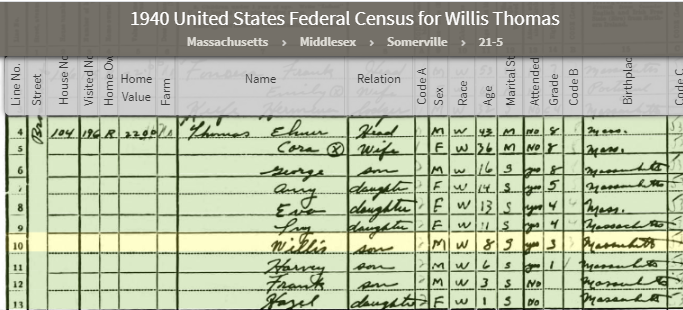 1940 United States Federal Census for Willis Thomas
Massachusetts › Middlesex › Somerville › 21-5
Line No. Street House No Visited No Home Ow Home Value Farm Name Relation Code A Sex Race Age Marital S Attended Grade Code B Birthplac Code C
4 104 196 R 2200 Thomas Elmer Head M W 43 M No 8 Mass.
5 Cora X Wife F W 36 M No 8 Mass.
6 George son M W 16 S yes 8 Massachusetts
7 Amy daughter F W 14 S yes 5 Massachusetts
8 Eva daughter F W 13 S yes 4 Mass.
9 daughter F W 11 S yes 4 Massachusetts
10 Willis son M W 8 S yes 3 Massachusetts
11 Harvey son M W 6 S yes 1 Massachusetts
12 Frank son M W 3 S No Massachusetts
13 Hazel daughter F W 1 S No Massachusetts